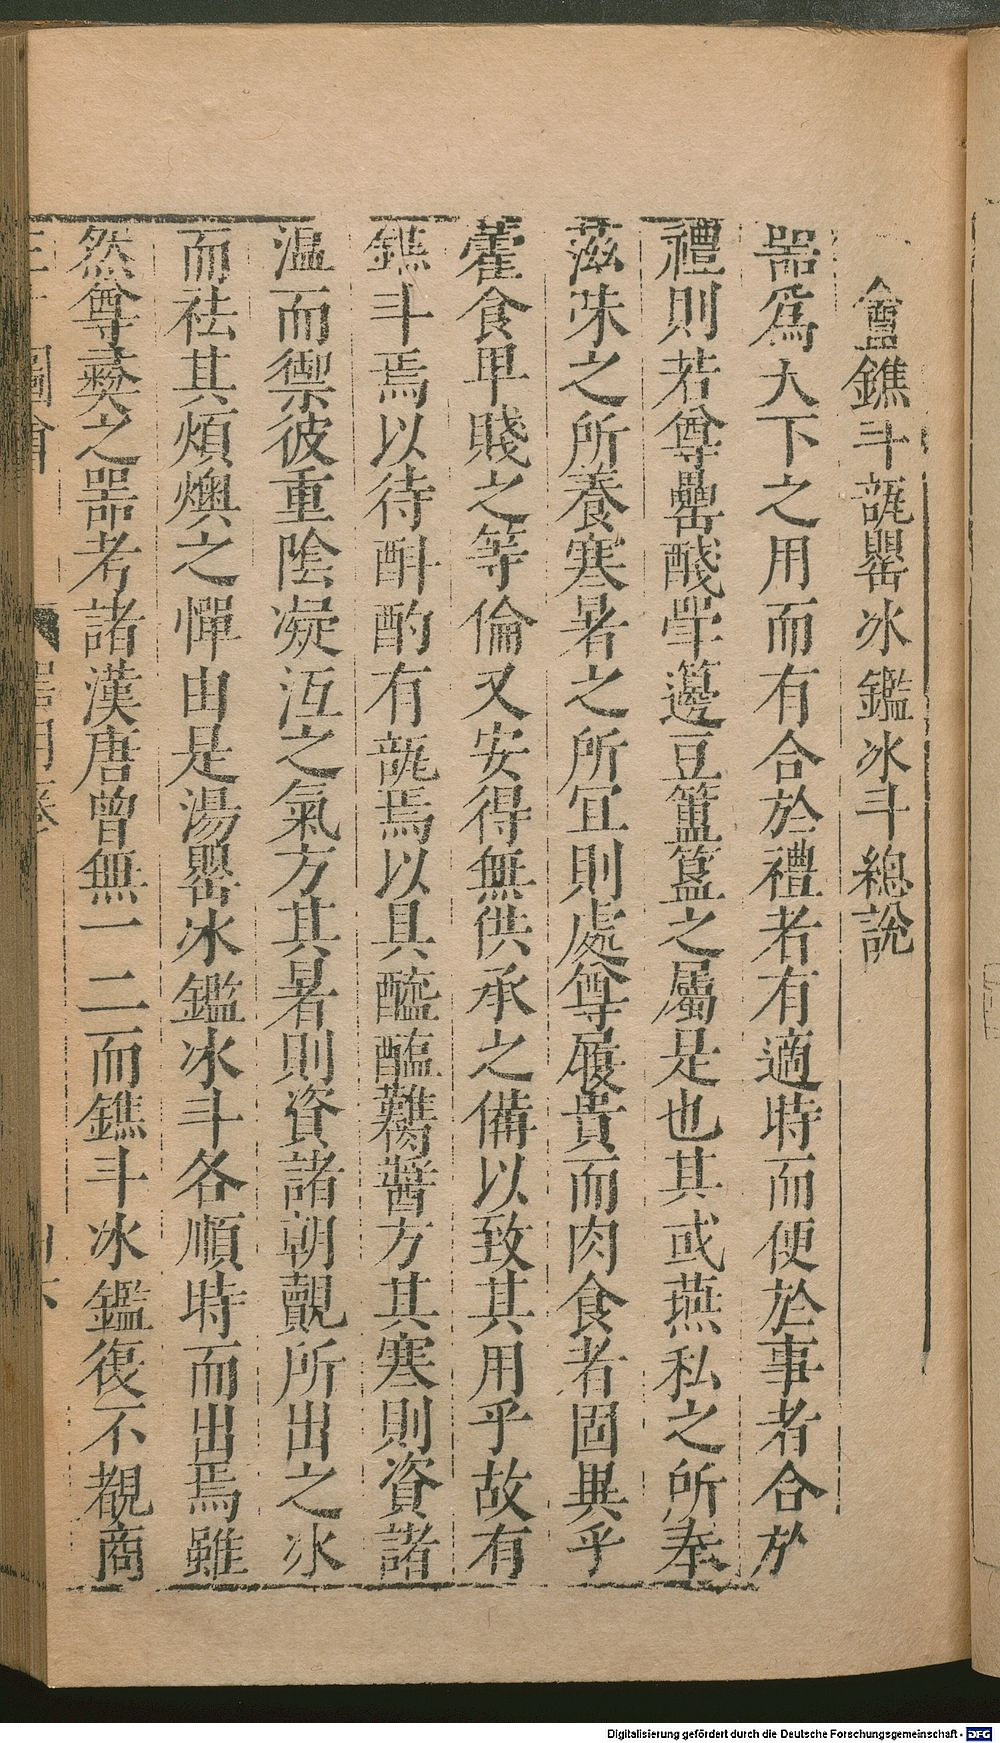 盦鐎斗瓿罌冰鑑冰斗總說
噐爲大下之用而有合於禮者有適時而便於事者合於
禮則若尊罍醆斝籩豆簠簋之屬是也其或燕私之所奉
滋味之所養寒暑之所宜則處尊履貴而肉食者固異乎
藿食𤰞賤之等倫又安得無供承之備以致其用乎故有
鐎斗焉以待㪺酌有瓿焉以具醯醢䕼醬方其寒則資諸
溫而禦彼重陰凝冱之氣方其暑則資諸朝覿所出之冰
而祛其煩燠之憚由是湯罌冰鑑冰斗各順時而出焉雖
然尊彝之噐考諸漢唐曾無一二而鐎斗冰鑑復不覩商
圖會